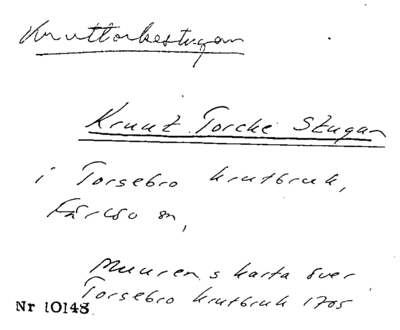 Kruttorkestugan
Kruut Torcke Stugan
i Torsebro krutbruk,
Färlöv sn,
Muurens karta över
Torsebro krutbruk 1705
Nr 10148.